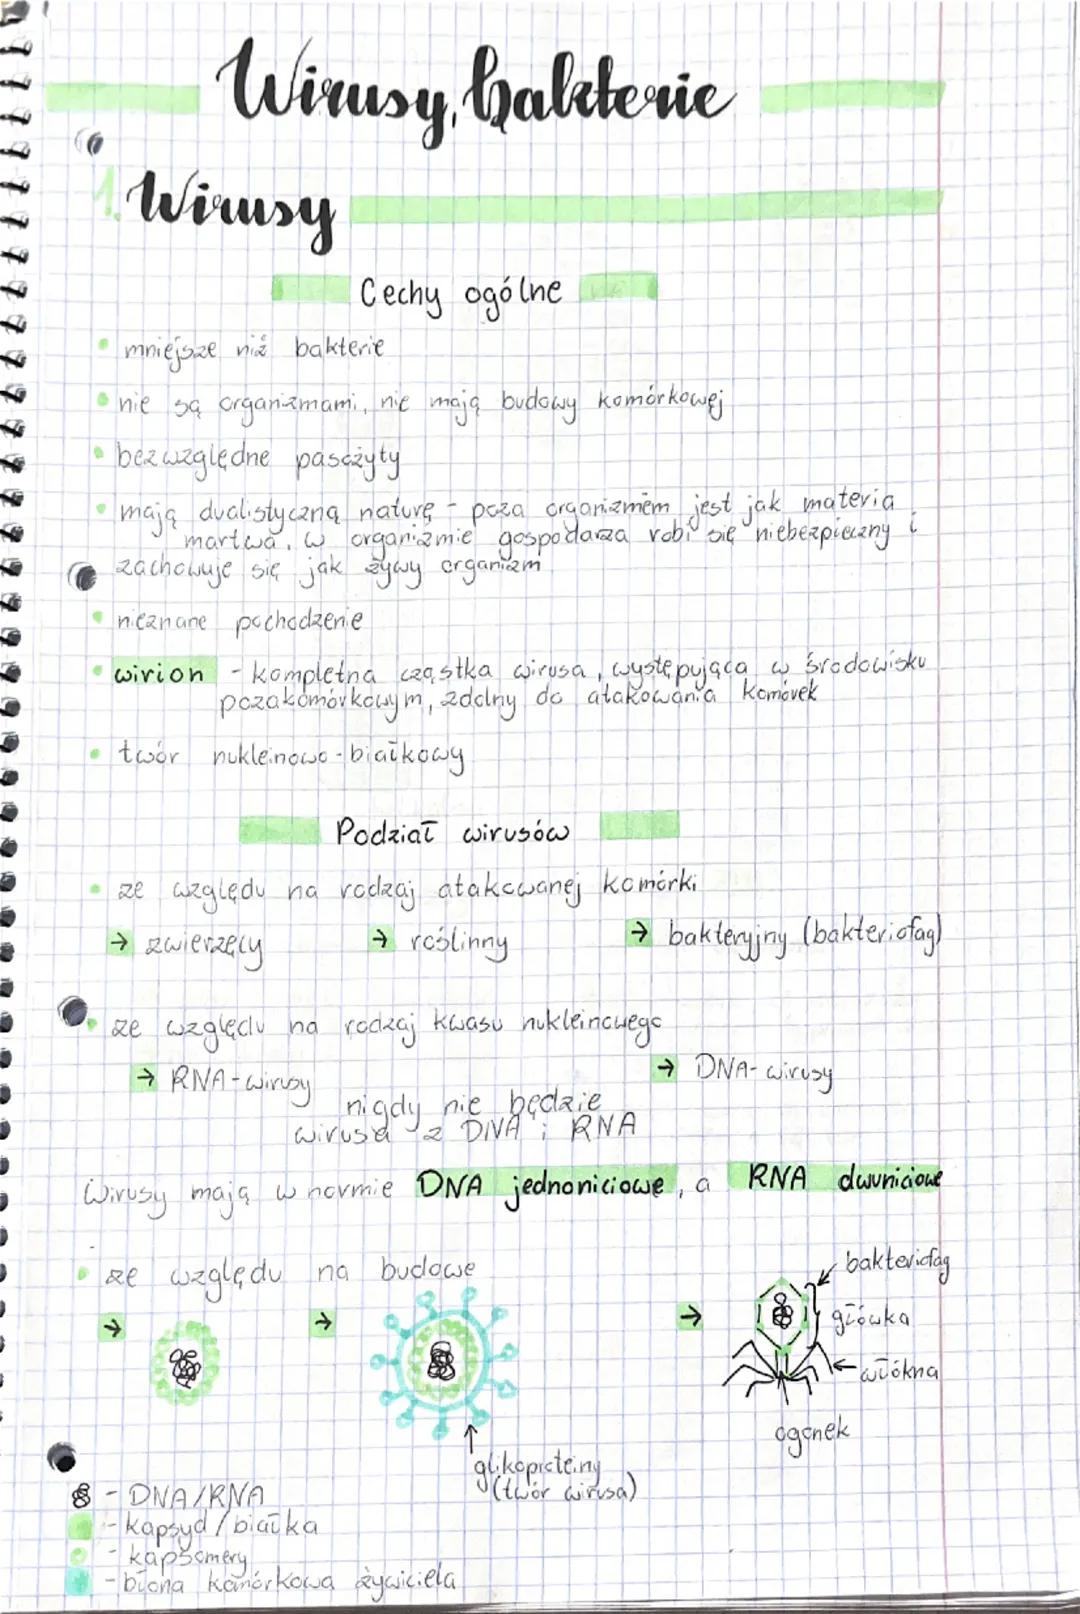 Wirusy, bakterie
1. Wirusy
Cechy ogólne
mniejsze niż bakterie
nie są organizmami, nie mają budowy komórkowej
bezwzględne pasożyty
mają dualistyczną naturę - poza organizmem jest jak materia
martwa, w organizmie gospodarza robi się niebezpieczny i
zachowuje się jak żywy organizm
nieznane pochodzenie
wirion - kompletna cząstka wirusa, występująca w środowisku
pozakomórkowym, zdolny do atakowania komórek
twór nukleinowo-białkowy
Podział wirusów
ze względu na rodzaj atakowanej komórki
→ zwierzęcy → roślinny → bakteryjny (bakteriofag)
ze względu na rodzaj kwasu nukleinowego
→ RNA-wirusy → DNA-wirusy
nigdy nie będzie
wirusa z DNA i RNA
Wirusy mają w normie DNA jednoniciowe, a RNA dwuniciowe
ze względu na budowe
→ → →
bakteriofag
główka
włókna
ogonek
glikoproteiny
(twór wirusa)
- DNA/RNA
- kapsyd / białka
- kapsomery
- błona komórkowa żywiciela